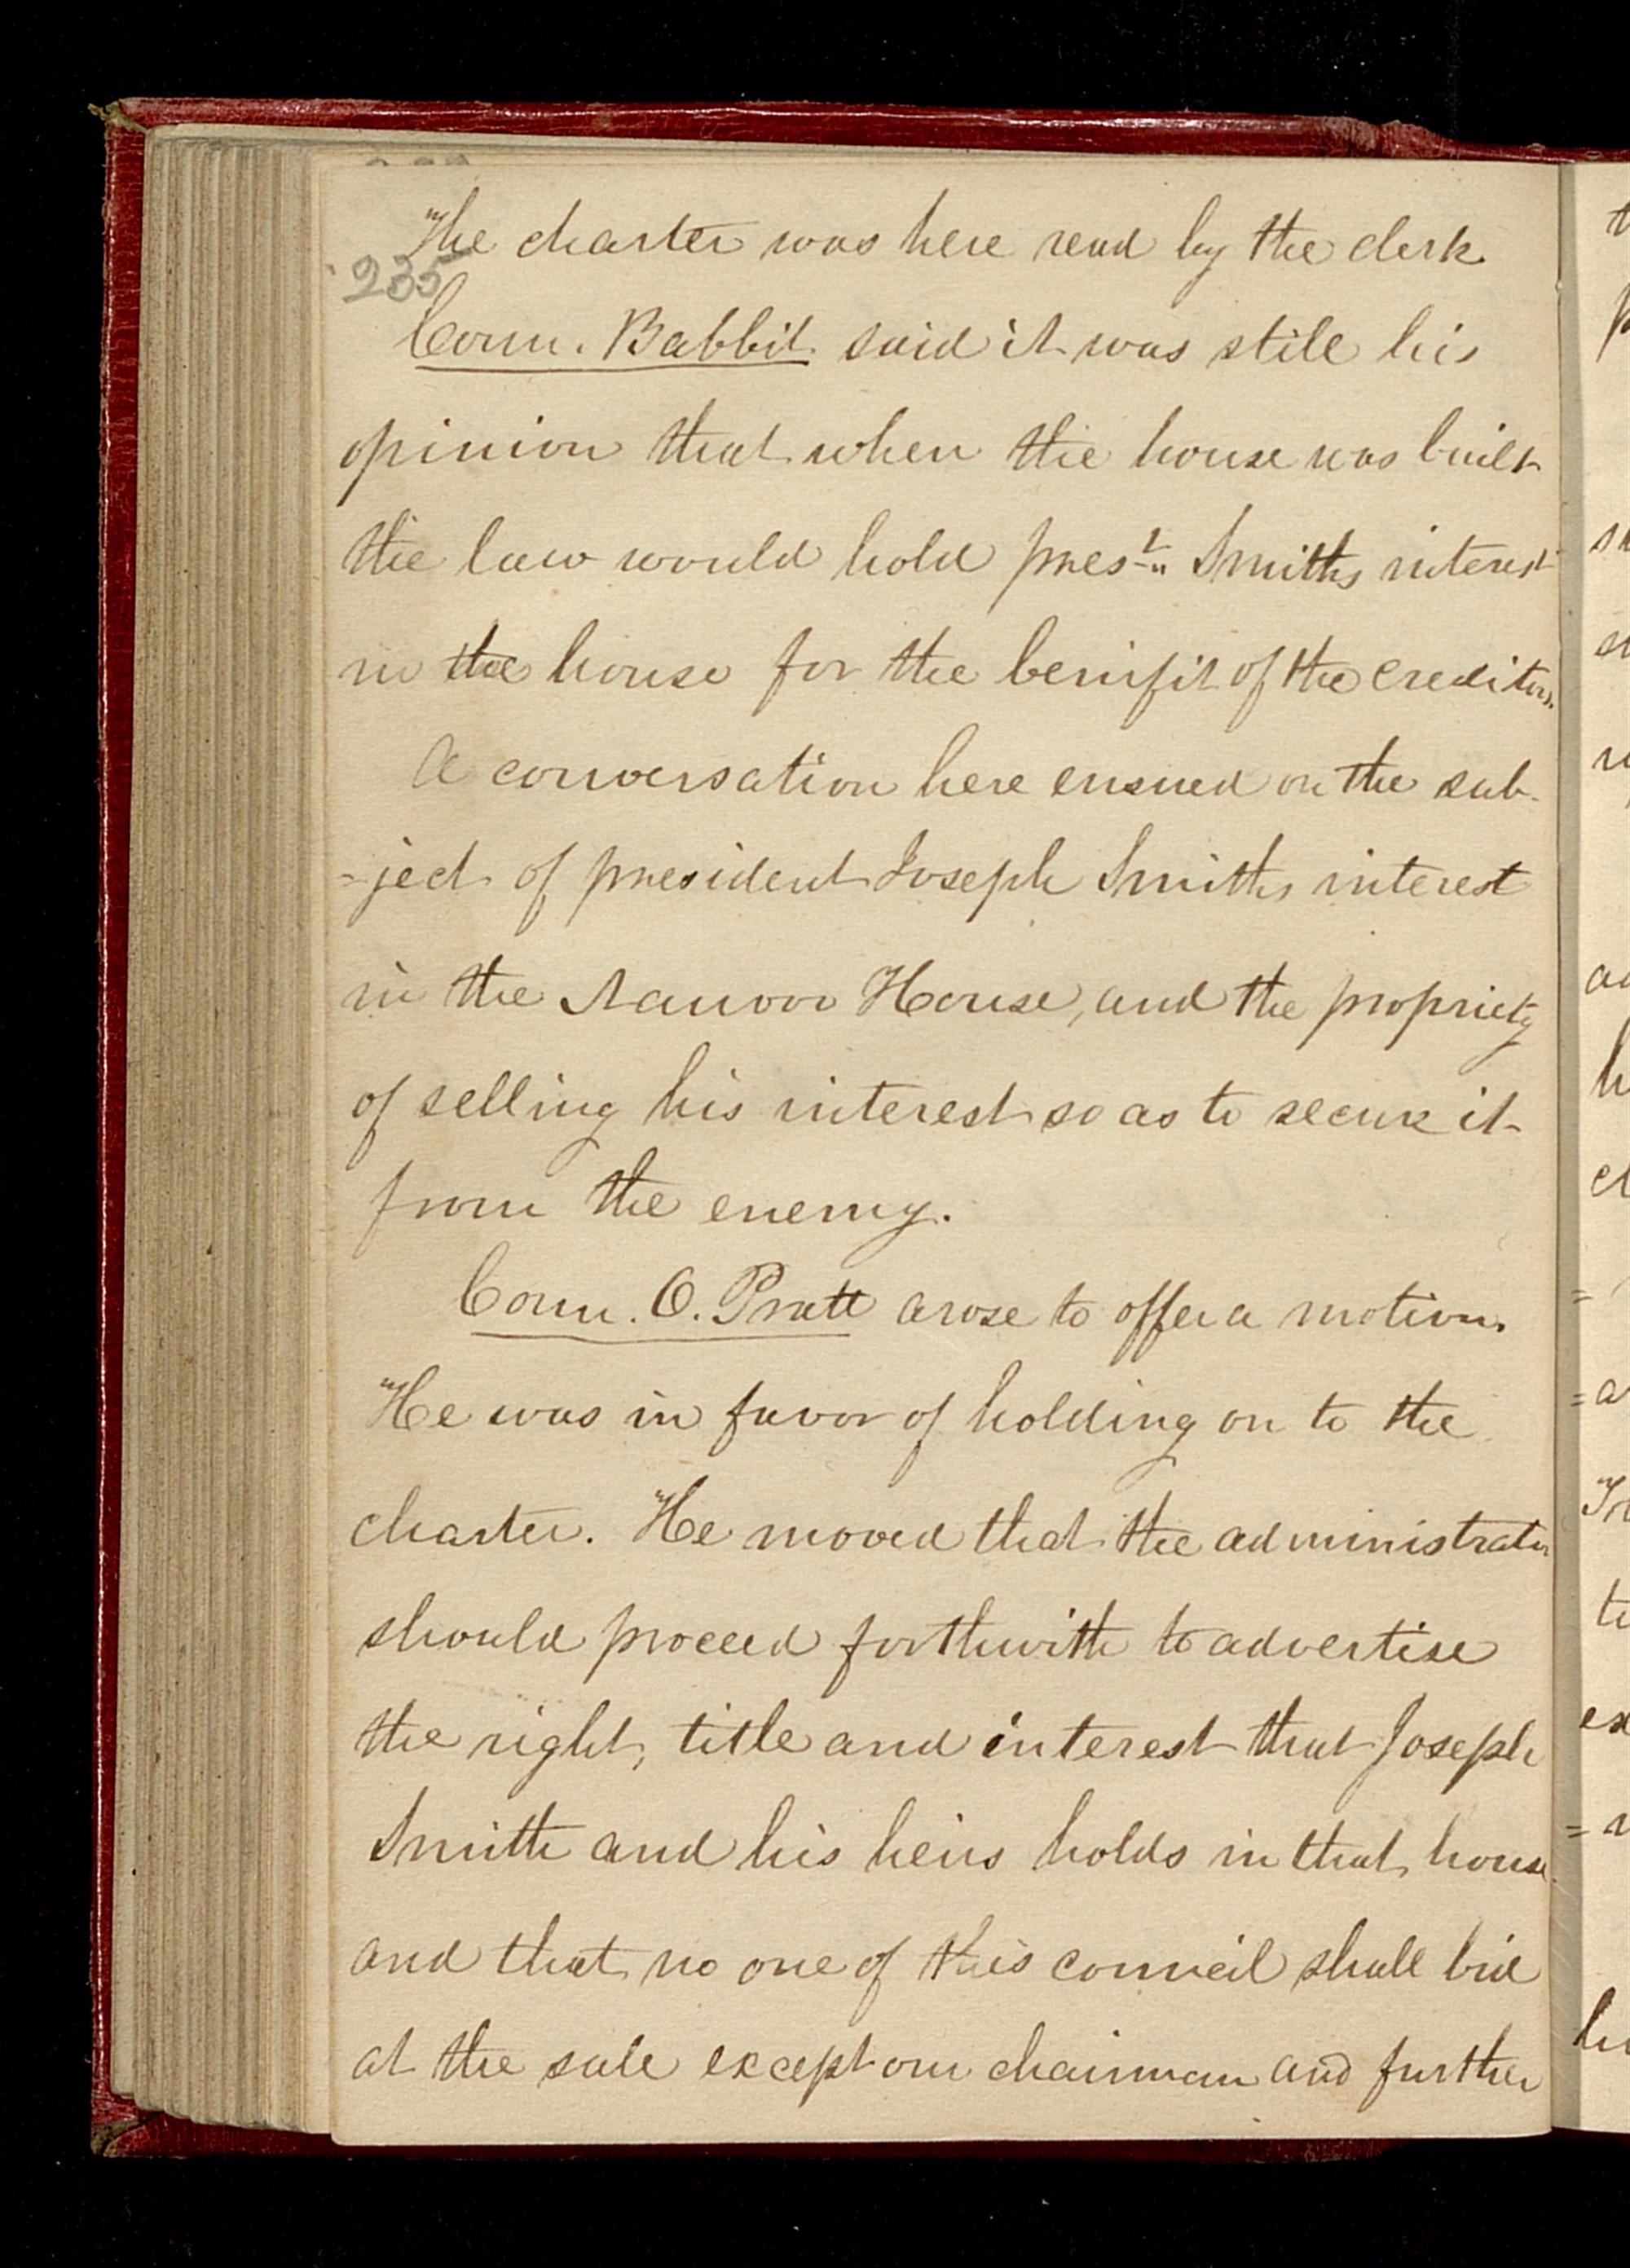 The charter was here read by the clerk.
235
Coun. Babbit said it was still his
opinion that when the house was built
the law would hold prest. Smiths interest
in the house for the benifit of the creditors.
A conversation here ensued on the sub-
-ject of president Joseph Smiths interest
in the Nauvoo House, and the propriety
of selling his interest so as to secure it
from the enemy.
Coun. O. Pratt arose to offer a motion.
He was in favor of holding on to the
charter. He moved that the administrator
should proceed forthwith to advertise
the right, title and interest that Joseph
Smith and his heirs holds in that house
and that no one of this council shall bid
at the sale except our chairman and further